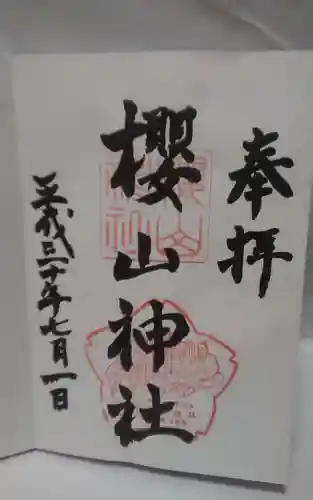 奉拝
櫻山神社
平成三十年七月一日